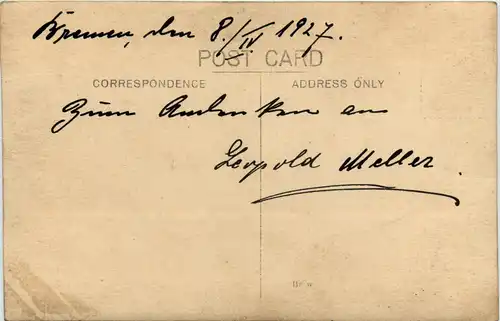 Bremen, den 8./IV 1927.
POST CARD
CORRESPONDENCE ADDRESS ONLY
Zum Andenken an
Leopold Meller.